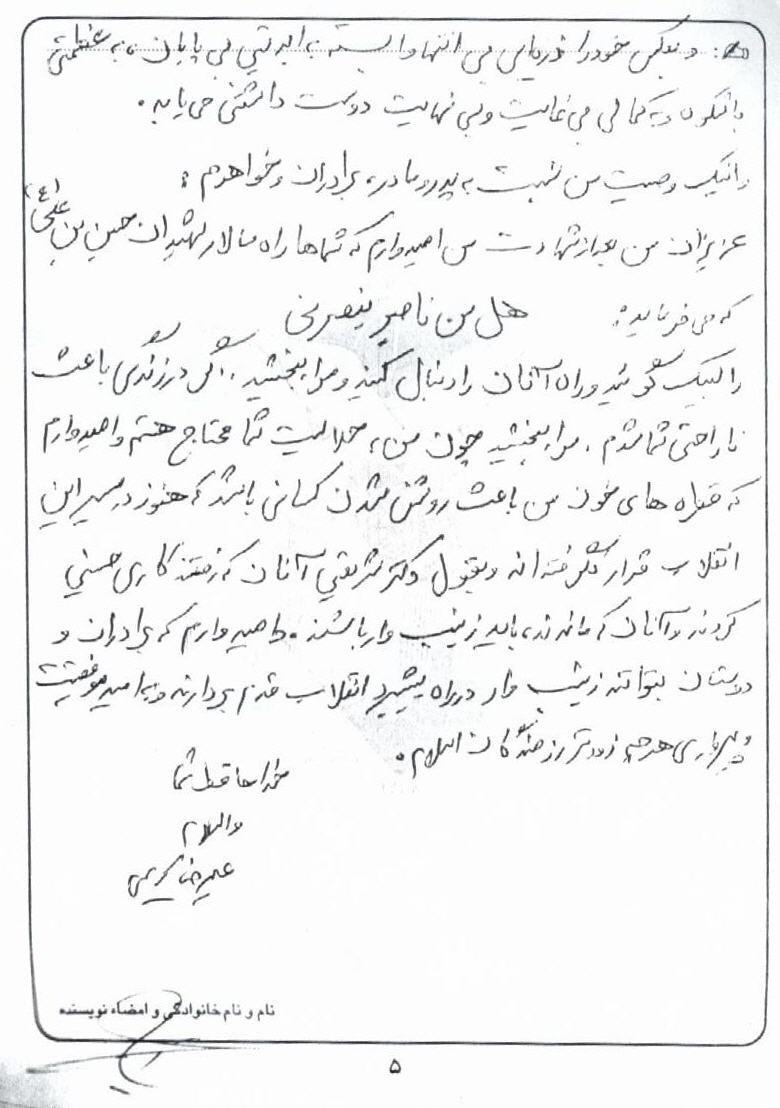 و بعکس خود را دریایی بی انتها وابسته به ابدیتی بی پایان، به عظمتی
باشکوه و به کمالی بی غایت و بی نهایت دوست داشتنی می یابد.
و اینک وصیت من نسبت به پدر و مادر، برادران و خواهرم:
عزیزان من بعد از شهادت من امیدوارم که شماها راه سالار شهیدان حسین بن علی (ع)
که می فرماید: هل من ناصر ینصرنی
را لبیک گوئید و راه آنان را دنبال کنید و مرا ببخشید. اگر در زندگی باعث
ناراحتی شما شدم. مرا ببخشید چون من، حلالیت شما محتاج هستم و امیدوارم
که قطره های خون من باعث روشن شدن کسانی باشد که هنوز در مسیر این
انقلاب قرار نگرفته اند و بقول دکتر شریعتی آنان که رفتند کاری حسینی
کردند و آنان که ماندند، باید زینب وار باشند. و امیدوارم که برادران و
دوستان بتوانند زینب وار در راه پیشبرد انقلاب قدم بردارند و به امید موفقیت
و پیروزی هر چه زودتر رزمندگان اسلام.
خدا حافظ شما
والسلام
علیرضا کریمی
نام و نام خانوادگی و امضاء نویسنده
۵